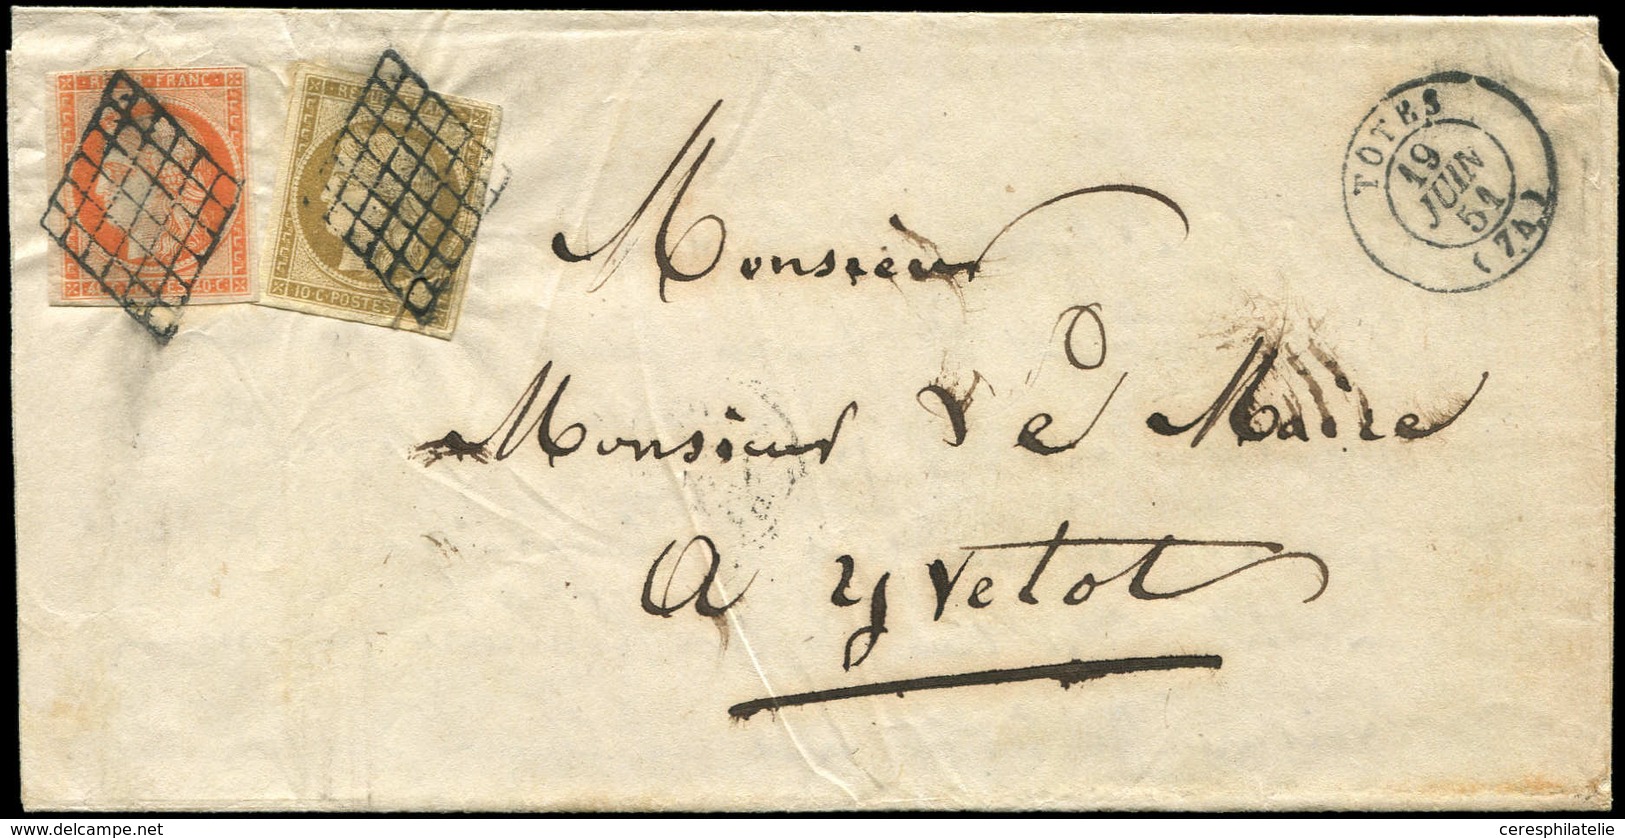 FRANC
40 C
10·C·POSTES
TOTES
19
JUIN
51
(74)
Monsieur
Monsieur Le Maire
A Yvetot
delcampe.net
ceresphilatelie